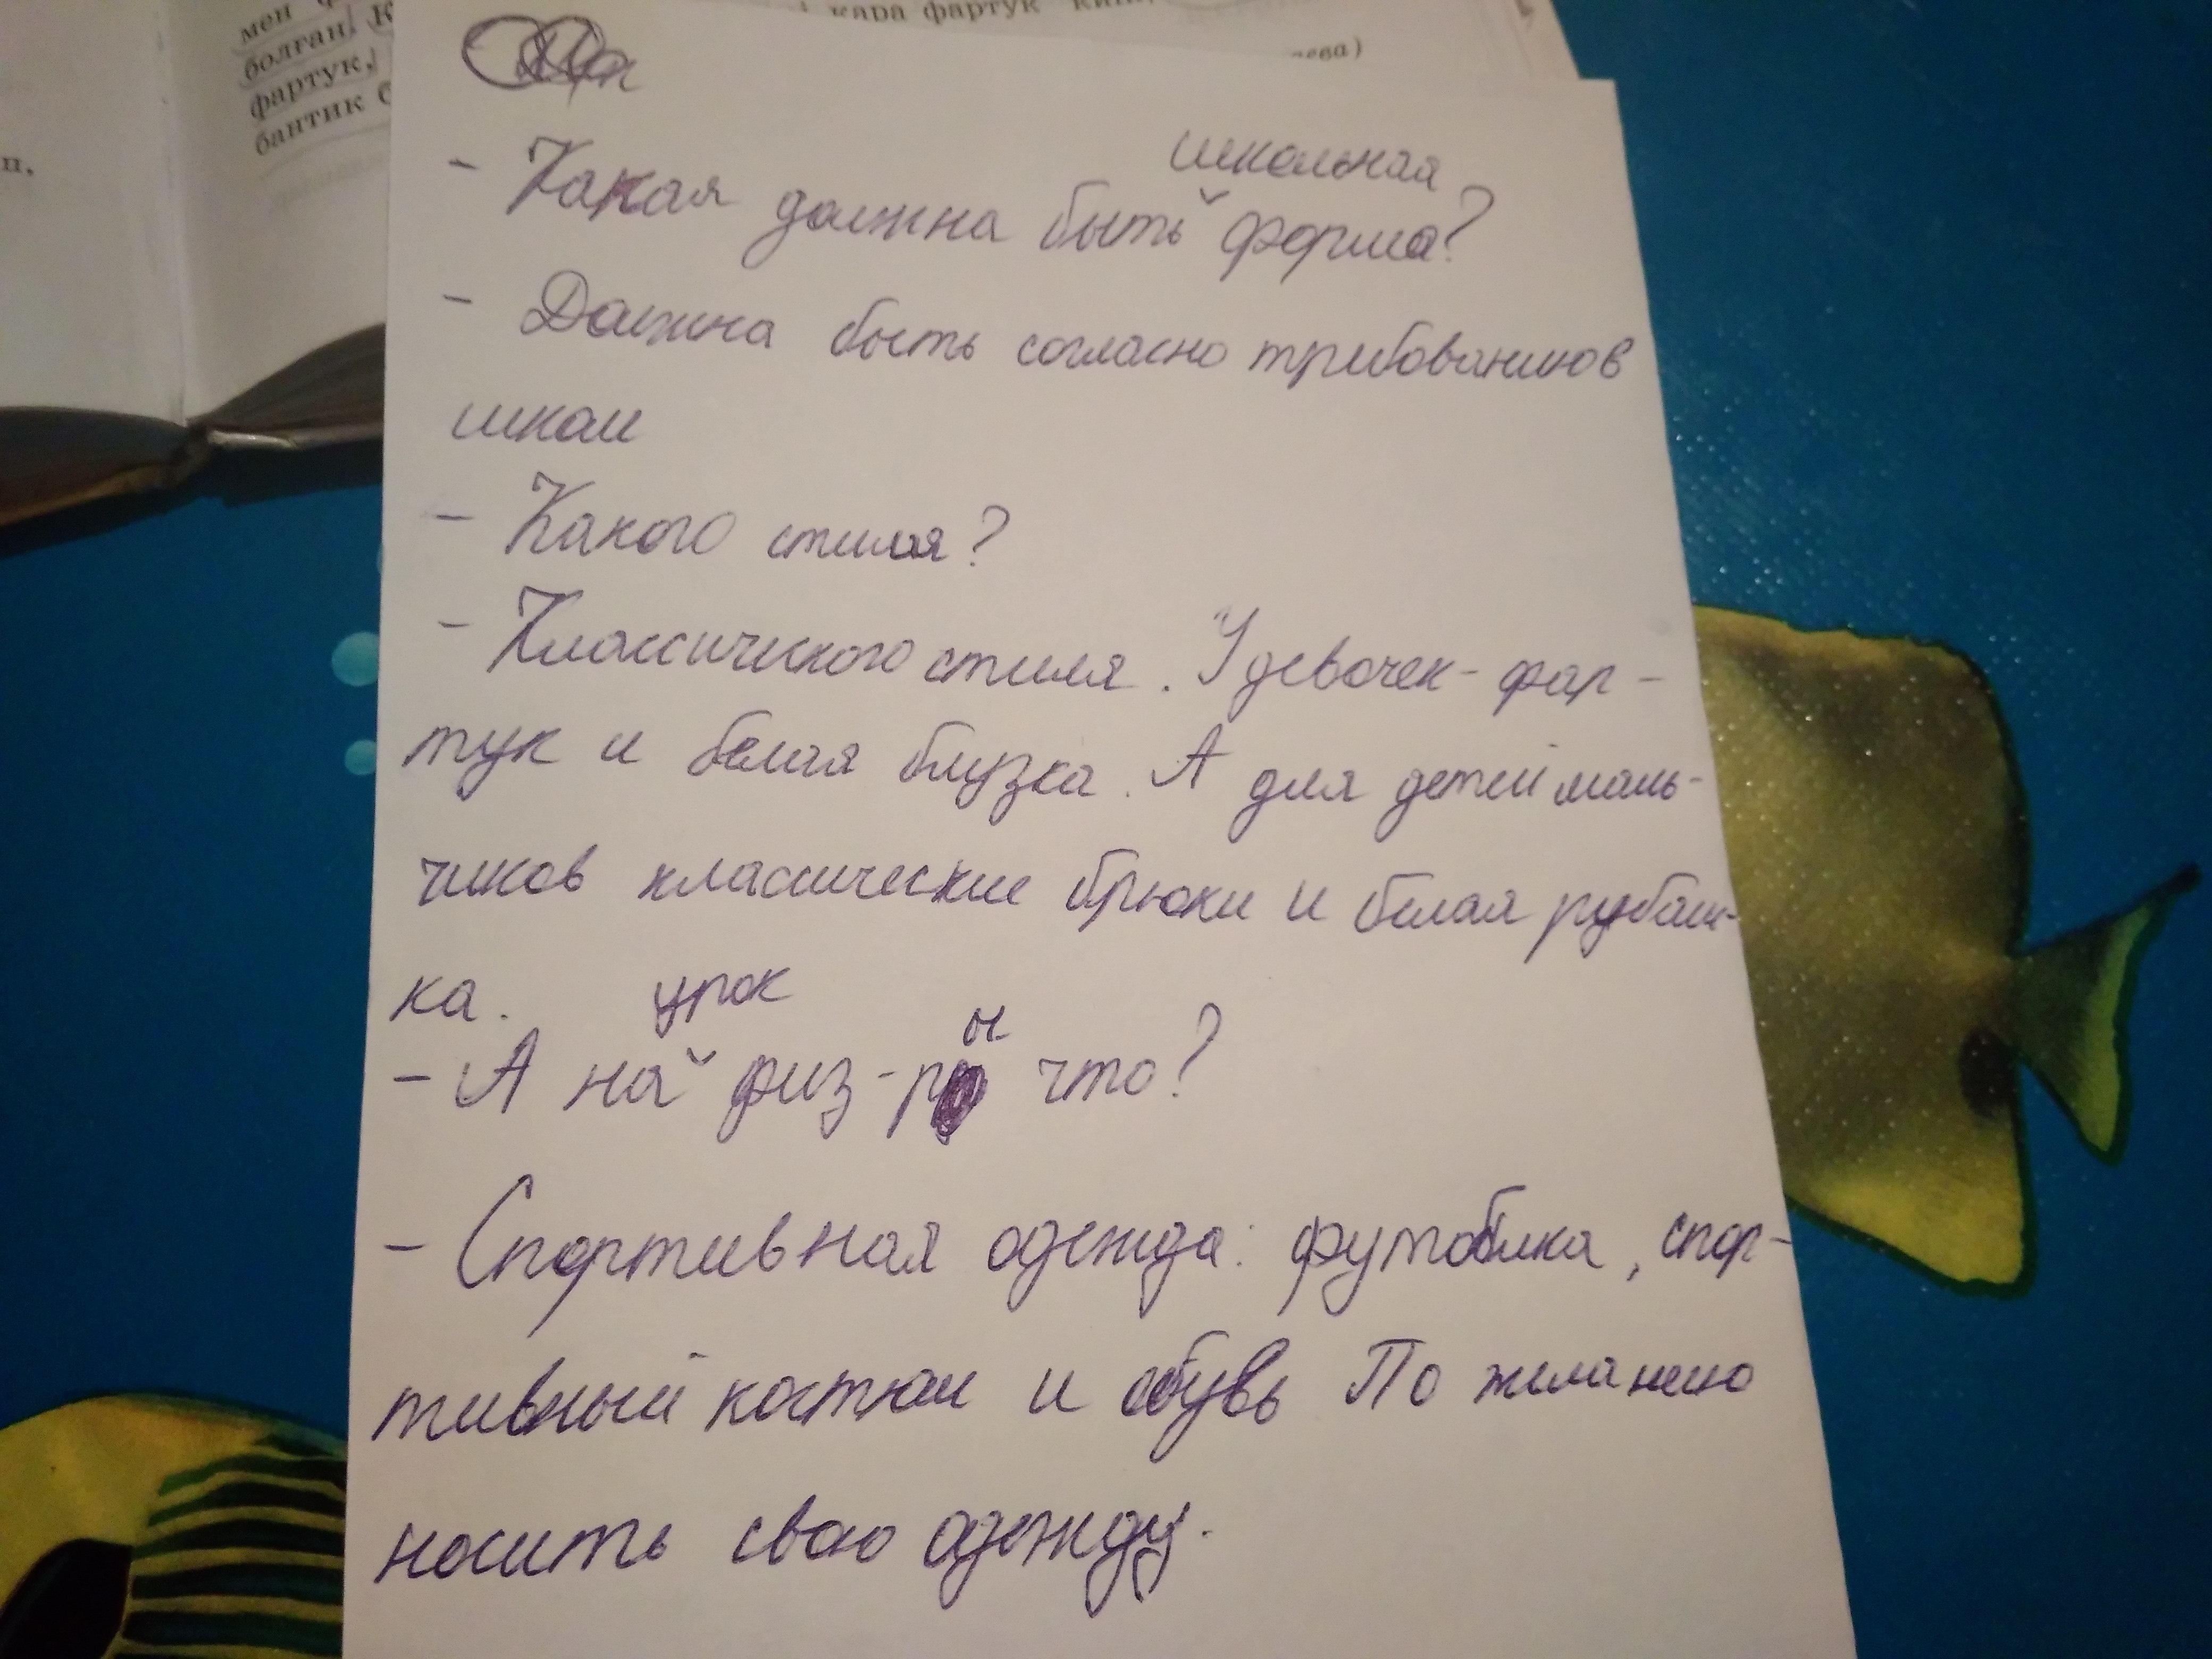 мен
болган, К
фартук,
бантик б
п,
кара фартук кийи
ева)
школьная
- Какая должна быть ˇ форма?
- Должна быть согласно трибованиюв
школ
- Какого стиля?
- Классического стиля. У девочек - фар-
тук и белая блузка. А для детей маль-
чиков классические брюки и белая рубаш-
ка. урок
ы
- А на ˇ физ-р что?
- Спортивная одежда: футоблка, спор-
тивный костюм и обувь По желанию
носить свою одежду.